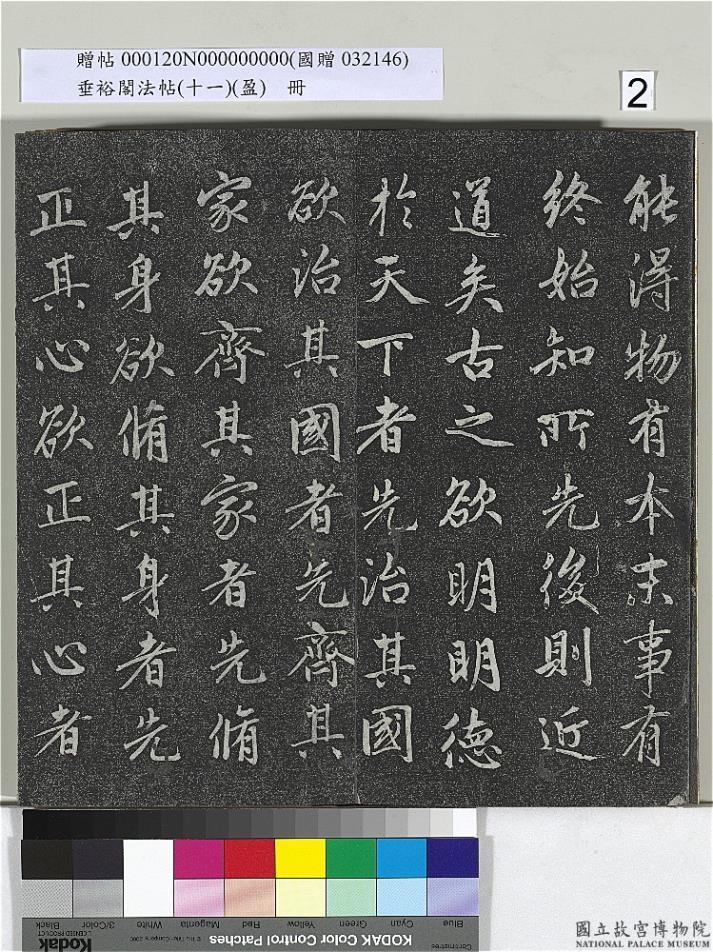 贈帖 000120N000000000(國贈 032146)
垂裕閣法帖(十一)(盈) 冊
2
能得物有本末事有
終始知所先後則近
道矣古之欲明明德
於天下者先治其國
欲治其國者先齊其
家欲齊其家者先脩
其身欲脩其身者先
正其心欲正其心者
Blue
Cyan
Green
Yellow
Red
Magenta
White
3/Color
Black
KODAK Color Control Patches
Kodak
LICENSED PRODUCT
國立故宮博物院
NATIONAL PALACE MUSEUM